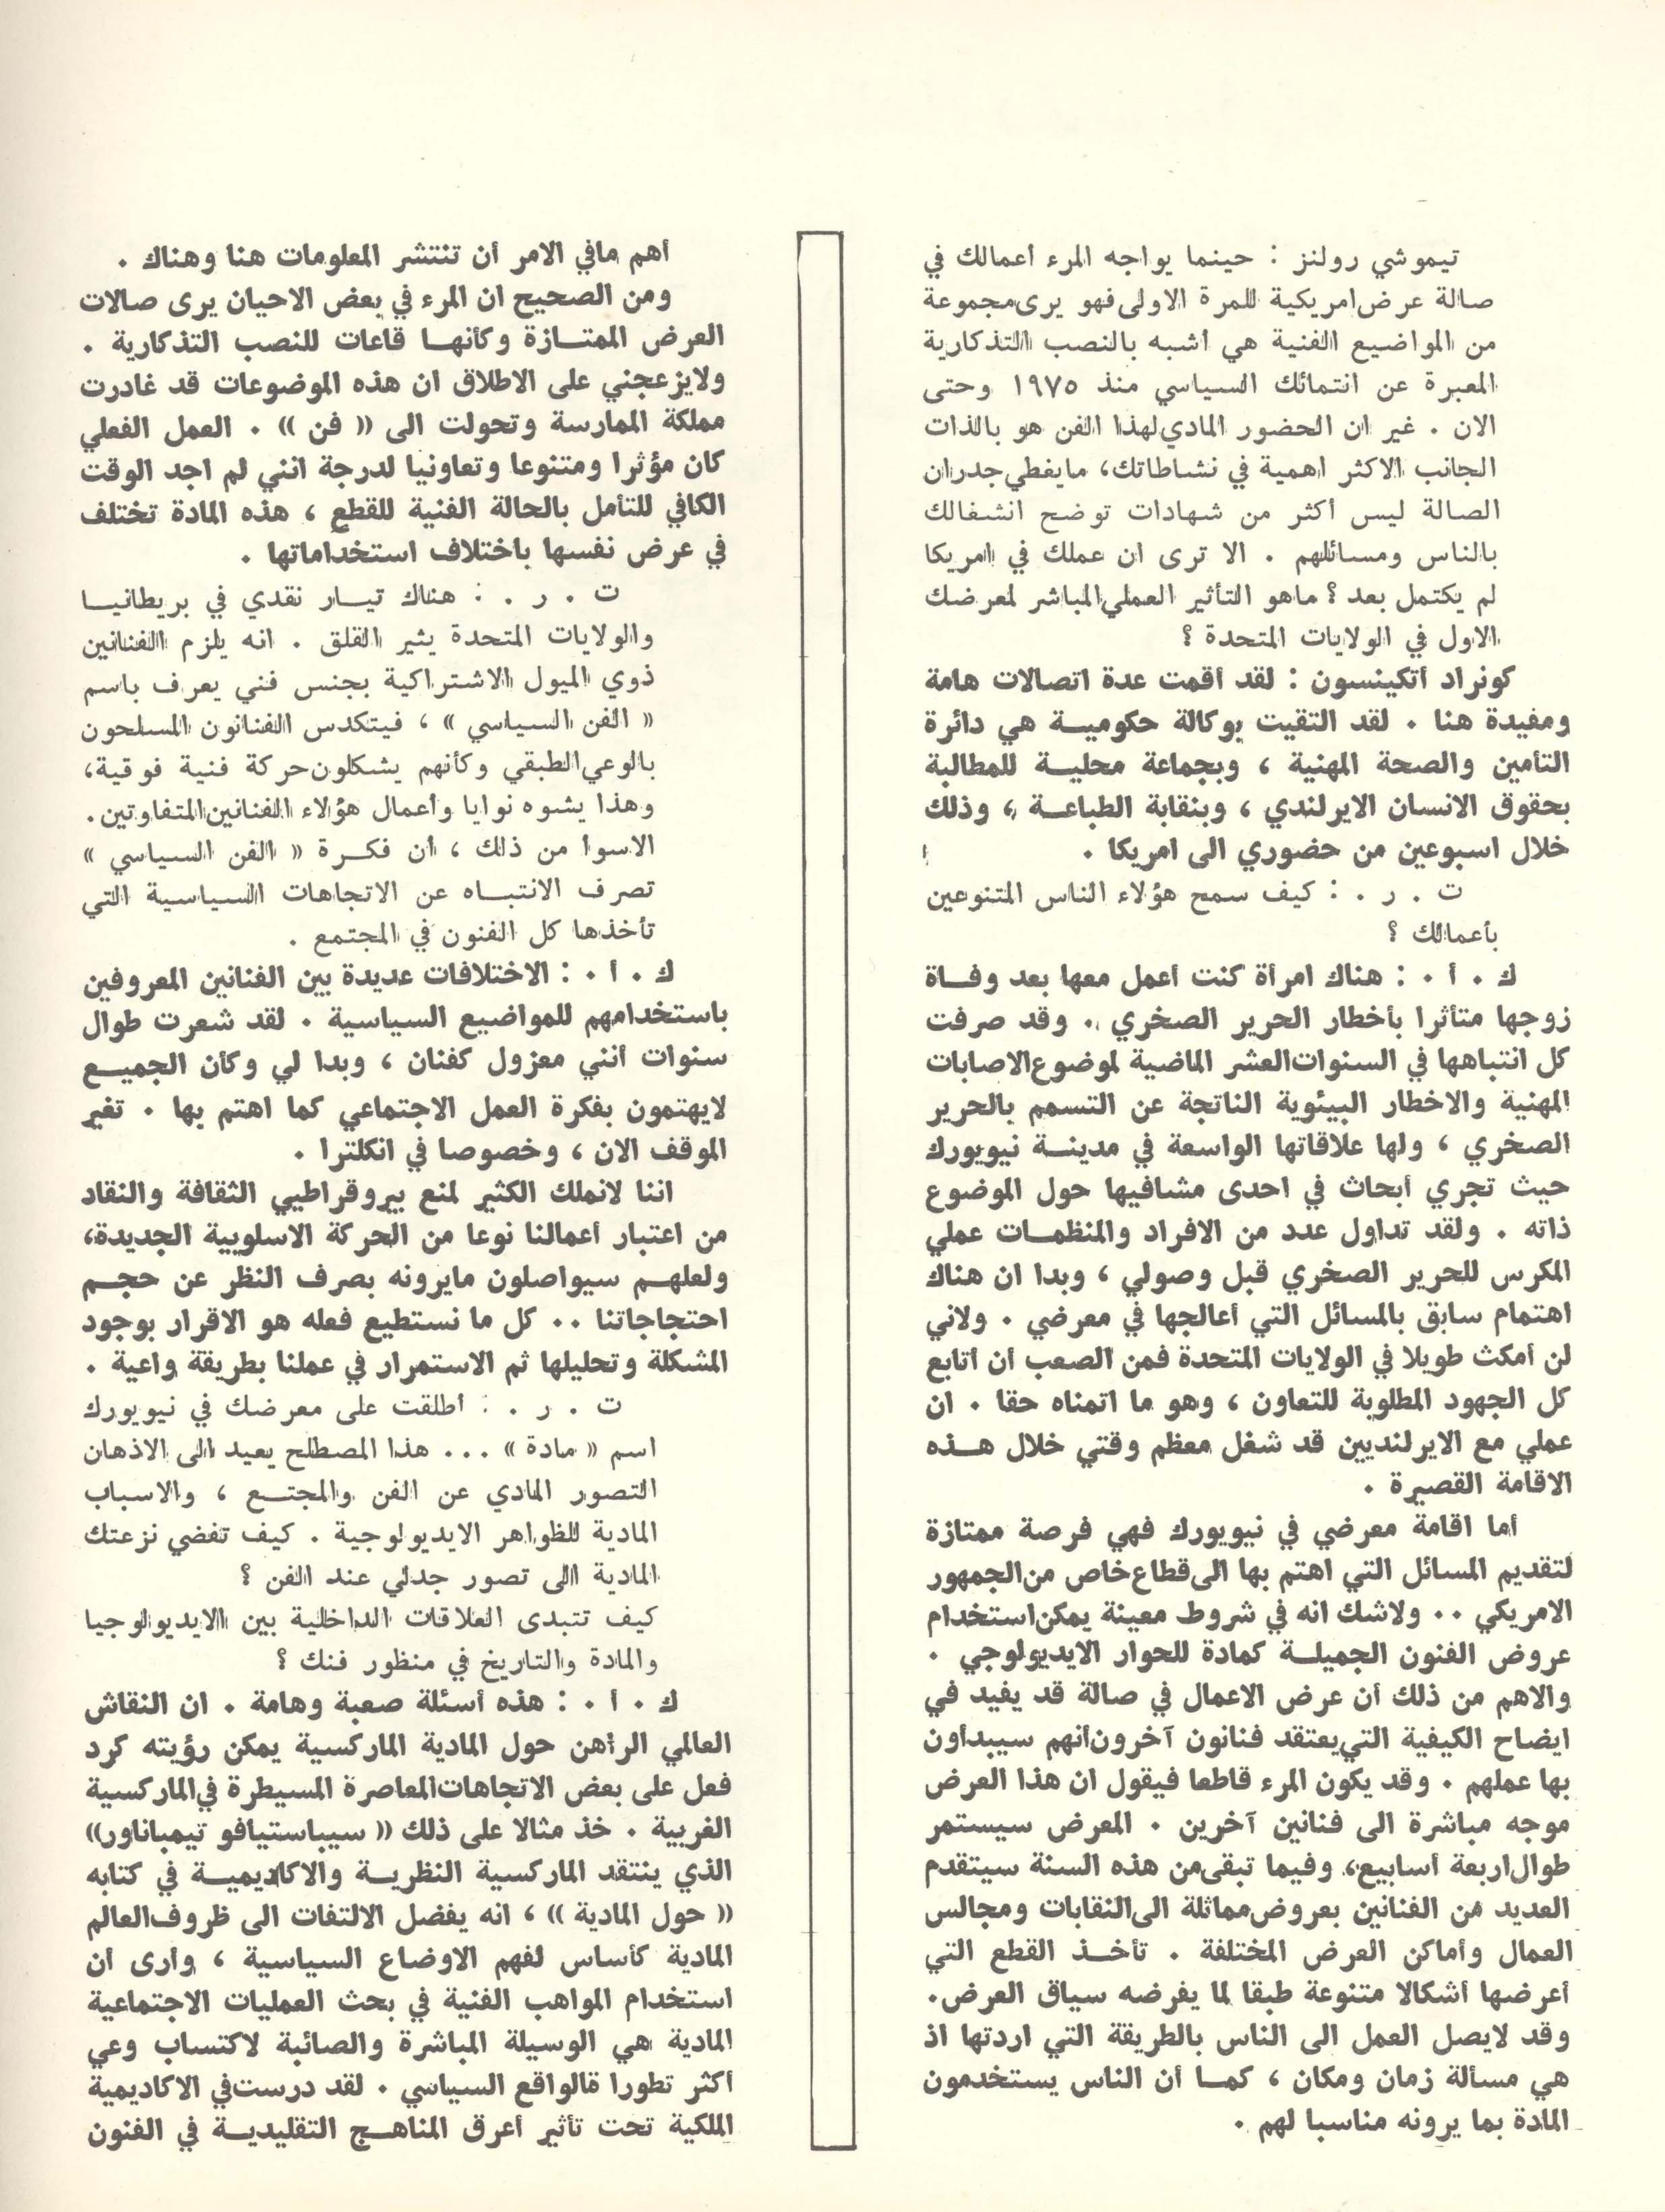 تيموشي رولنز : حينما يواجه المرء اعمالك في
صالة عرض امريكية للمرة الاولى فهو يرى مجموعة
من المواضيع الفنية هي أشبه بالنصب التذكارية
المعبرة عن انتمائك السياسي منذ ١٩٧٥ وحتى
الان . غير ان الحضور المادي لهذا الفن هو بالذات
الجانب الاكثر اهمية في نشاطاتك، مايغطي جدران
الصالة ليس أكثر من شهادات توضح انشغالك
بالناس ومسائلهم . الا ترى ان عملك في امريكا
لم يكتمل بعد ؟ ماهو التأثير العملي المباشر لمعرضك
الاول في الولايات المتحدة ؟
كونراد أتكينسون : لقد أقمت عدة اتصالات هامة
ومفيدة هنا . لقد التقيت بوكالة حكومية هي دائرة
التأمين والصحة المهنية ، وبجماعة محلية للمطالبة
بحقوق الانسان الايرلندي ، وبنقابة الطباعة ، وذلك
خلال اسبوعين من حضوري الى امريكا .
ت . ر . : كيف سمح هؤلاء الناس المتنوعين
بأعمالك ؟
ك . أ . : هناك امرأة كنت أعمل معها بعد وفاة
زوجها متأثرا بأخطار الحرير الصخري . وقد صرفت
كل انتباهها في السنوات العشر الماضية لموضوع الاصابات
المهنية والاخطار البيئوية الناتجة عن التسمم بالحرير
الصخري ، ولها علاقاتها الواسعة في مدينة نيويورك
حيث تجري أبحاث في احدى مشافيها حول الموضوع
ذاته . ولقد تداول عدد من الافراد والمنظمات عملي
المكرس للحرير الصخري قبل وصولي ، وبدا ان هناك
اهتمام سابق بالمسائل التي أعالجها في معرضي . ولاني
لن أمكث طويلا في الولايات المتحدة فمن الصعب أن أتابع
كل الجهود المطلوبة للتعاون ، وهو ما اتمناه حقا . ان
عملي مع الايرلنديين قد شغل معظم وقتي خلال هذه
الاقامة القصيرة .
أما اقامة معرضي في نيويورك فهي فرصة ممتازة
لتقديم المسائل التي اهتم بها الى قطاع خاص من الجمهور
الامريكي .. ولاشك انه في شروط معينة يمكن استخدام
عروض الفنون الجميلة كمادة للحوار الايديولوجي .
والاهم من ذلك أن عرض الاعمال في صالة قد يفيد في
ايضاح الكيفية التي يعتقد فنانون آخرون أنهم سيبدأون
بها عملهم . وقد يكون المرء قاطعا فيقول ان هذا العرض
موجه مباشرة الى فنانين آخرين . المعرض سيستمر
طوال اربعة أسابيع، وفيما تبقى من هذه السنة سيتقدم
العديد من الفنانين بعروض مماثلة الى النقابات ومجالس
العمال وأماكن العرض المختلفة . تأخذ القطع التي
أعرضها أشكالا متنوعة طبقا لما يفرضه سياق العرض.
وقد لايصل العمل الى الناس بالطريقة التي اردتها اذ
هي مسألة زمان ومكان ، كما أن الناس يستخدمون
المادة بما يرونه مناسبا لهم .
أهم مافي الامر أن تنتشر المعلومات هنا وهناك .
ومن الصحيح ان المرء في بعض الاحيان يرى صالات
العرض الممتازة وكأنها قاعات للنصب التذكارية .
ولايزعجني على الاطلاق ان هذه الموضوعات قد غادرت
مملكة الممارسة وتحولت الى « فن » . العمل الفعلي
كان مؤثرا ومتنوعا وتعاونيا لدرجة انني لم اجد الوقت
الكافي للتأمل بالحالة الفنية للقطع ، هذه المادة تختلف
في عرض نفسها باختلاف استخداماتها .
ت . ر . : هناك تيار نقدي في بريطانيا
والولايات المتحدة يثير القلق . انه يلزم الفنانين
ذوي الميول الاشتراكية بجنس فني يعرف باسم
« الفن السياسي » ، فيتكدس الفنانون المسلحون
بالوعي الطبقي وكأنهم يشكلون حركة فنية فوقية،
وهذا يشوه نوايا وأعمال هؤلاء الفنانين المتفاوتين.
الاسوأ من ذلك ، أن فكرة « الفن السياسي »
تصرف الانتباه عن الاتجاهات السياسية التي
تأخذها كل الفنون في المجتمع .
ك . أ . : الاختلافات عديدة بين الفنانين المعروفين
باستخدامهم للمواضيع السياسية . لقد شعرت طوال
سنوات أنني معزول كفنان ، وبدا لي وكأن الجميع
لايهتمون بفكرة العمل الاجتماعي كما اهتم بها . تغير
الموقف الان ، وخصوصا في انكلترا .
اننا لانملك الكثير لمنع بيروقراطيي الثقافة والنقاد
من اعتبار أعمالنا نوعا من الحركة الاسلوبية الجديدة،
ولعلهم سيواصلون مايرونه بصرف النظر عن حجم
احتجاجاتنا .. كل ما نستطيع فعله هو الاقرار بوجود
المشكلة وتحليلها ثم الاستمرار في عملنا بطريقة واعية .
ت . ر . : أطلقت على معرضك في نيويورك
اسم « مادة » ... هذا المصطلح يعيد الى الاذهان
التصور المادي عن الفن والمجتمع ، والاسباب
المادية للظواهر الايديولوجية . كيف تفضي نزعتك
المادية الى تصور جدلي عند الفن ؟
كيف تتبدى العلاقات الداخلية بين الايديولوجيا
والمادة والتاريخ في منظور فنك ؟
ك . أ . : هذه أسئلة صعبة وهامة . ان النقاش
العالمي الراهن حول المادية الماركسية يمكن رؤيته كرد
فعل على بعض الاتجاهات المعاصرة المسيطرة في الماركسية
الغربية . خذ مثالا على ذلك « سيباستيافو تيمباناور»
الذي ينتقد الماركسية النظرية والاكاديمية في كتابه
« حول المادية » ، انه يفضل الالتفات الى ظروف العالم
المادية كأساس لفهم الاوضاع السياسية ، وأرى أن
استخدام المواهب الفنية في بحث العمليات الاجتماعية
المادية هي الوسيلة المباشرة والصائبة لاكتساب وعي
أكثر تطورا قالواقع السياسي . لقد درست في الاكاديمية
الملكية تحت تأثير أعرق المناهج التقليدية في الفنون